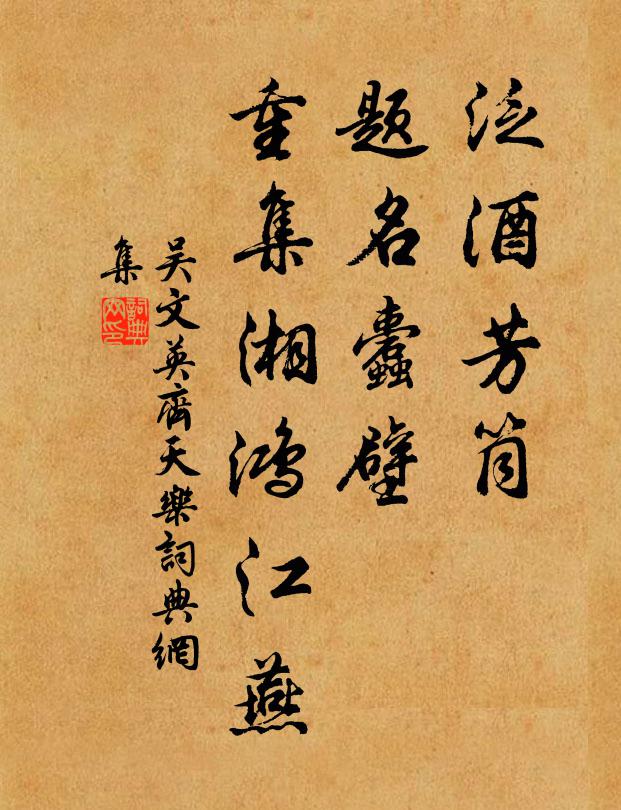 泛酒芳筒
題名蠹壁
重集湘鴻江燕
吴文英齊天樂詞典網
集
詞典網印